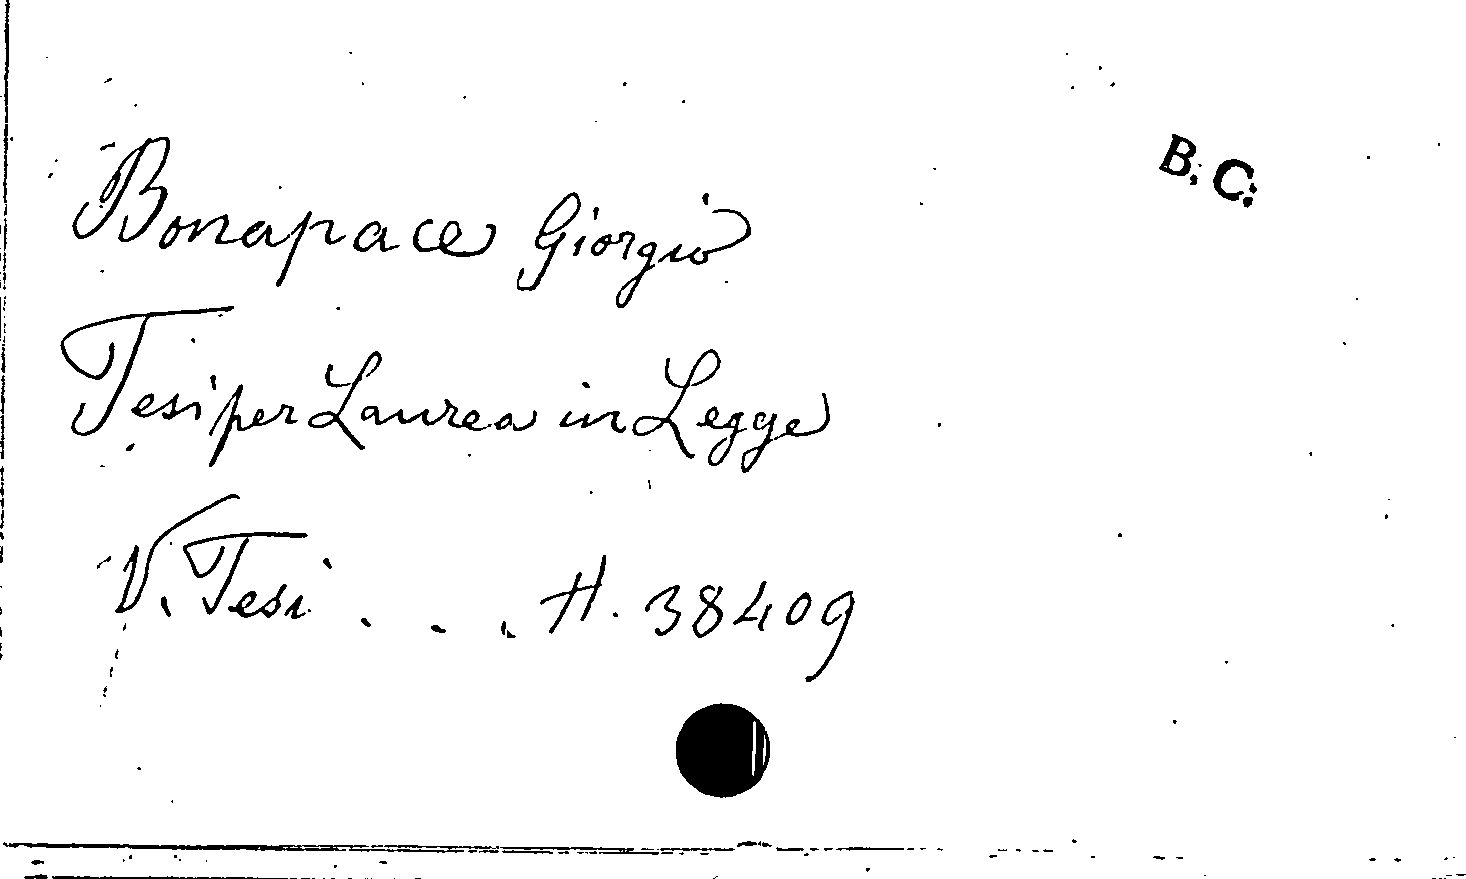 B. C.
Bonapace Giorgio
Tesi per Laurea in Legge
V. Tesi . . . H. 38409